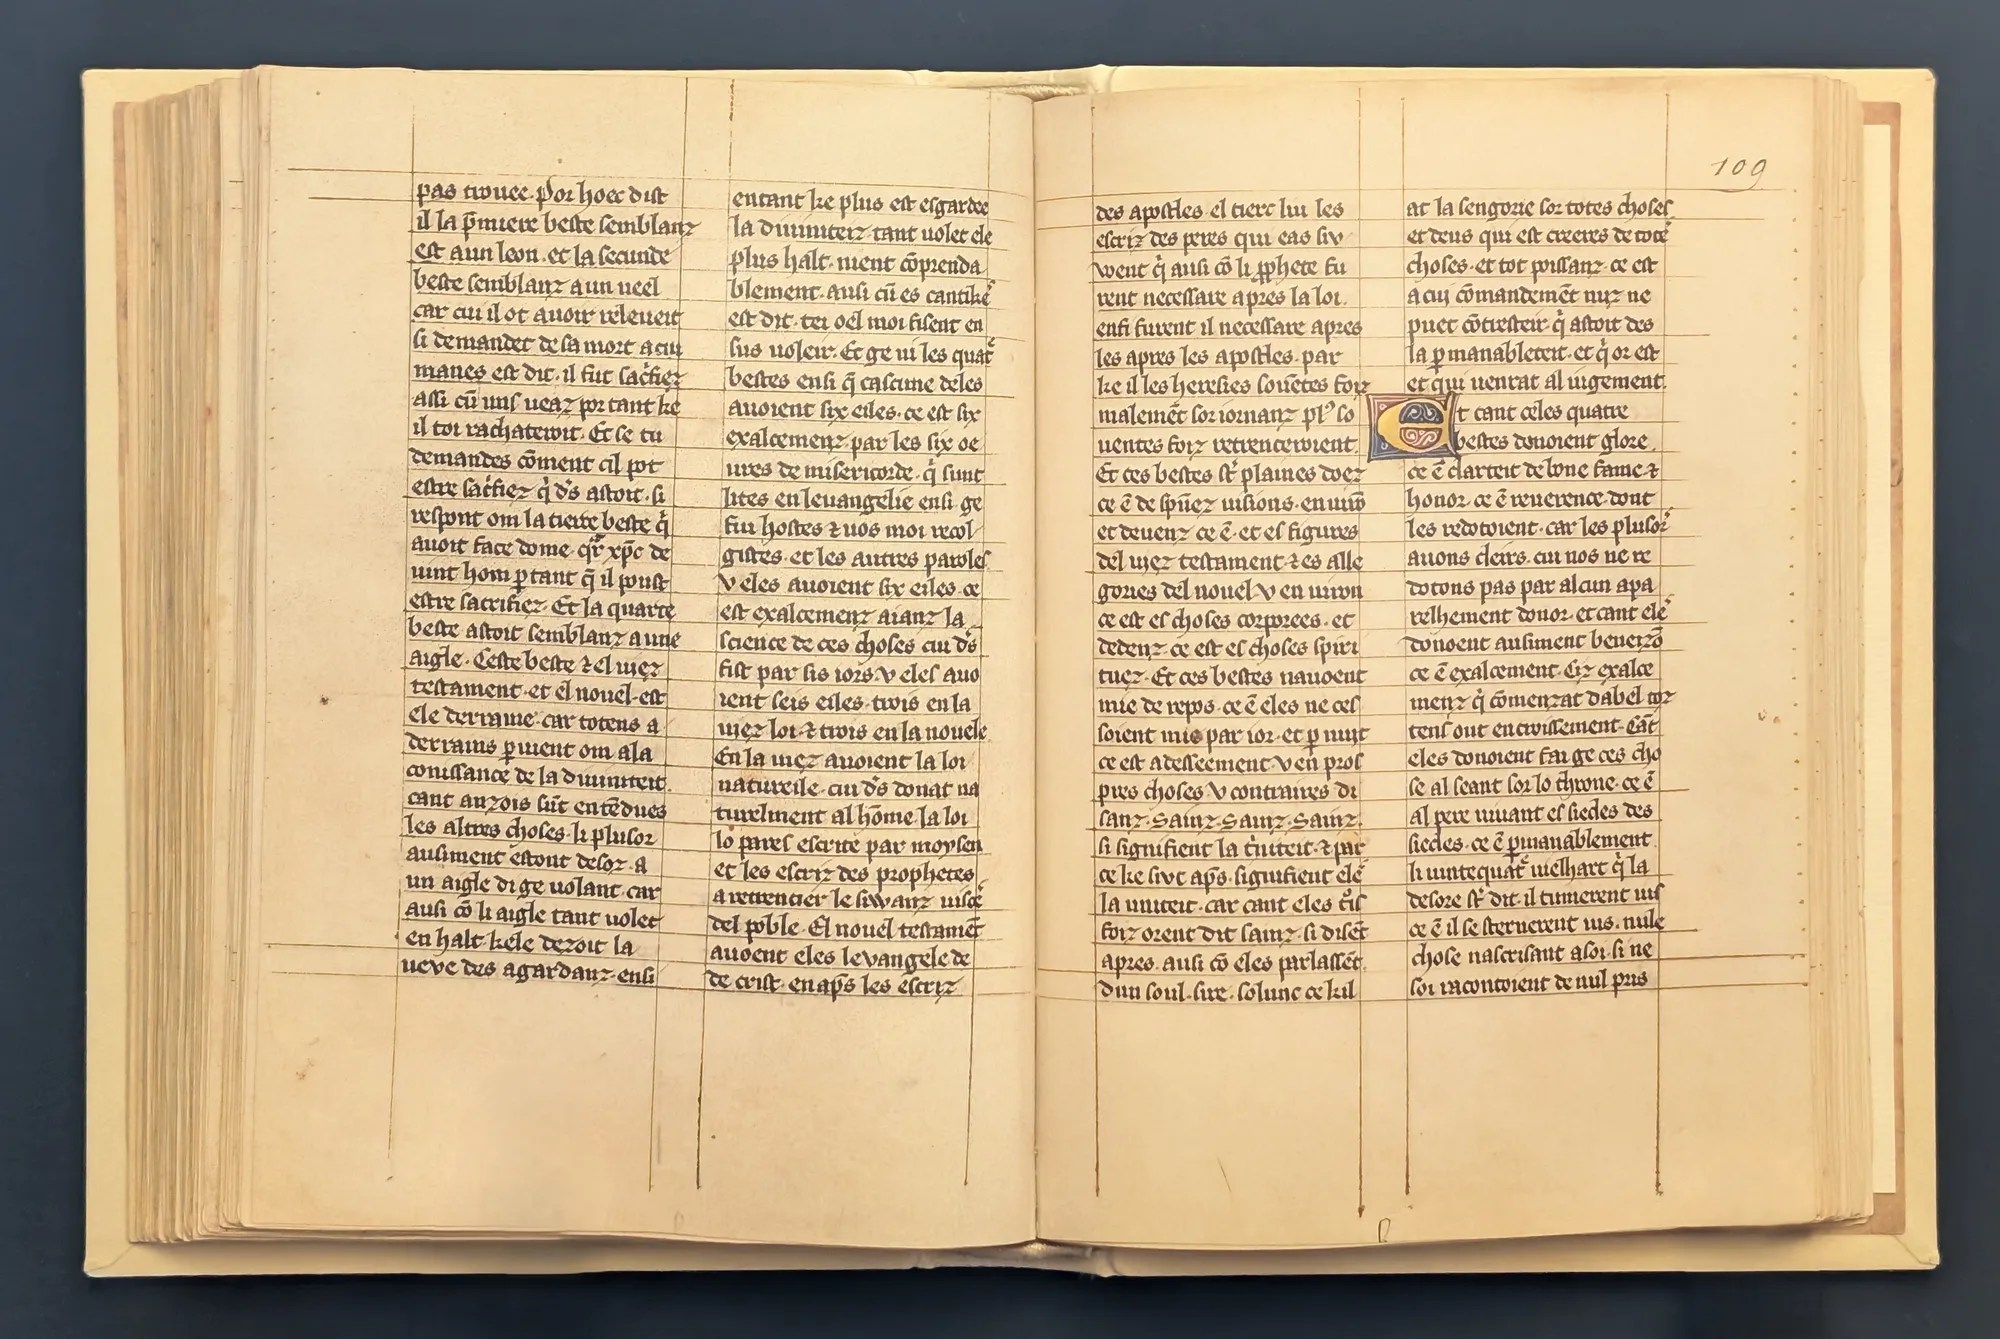 pas trouee. Por hoec dist
il la p̄miere beste semblanz
est a un leon. et la secunde
beste semblanz a un ueel
car cui il ot auoir releueit
si demandet de sa mort a cui
manes est dit. il fut sac̓fiez
assi cū uns ueaz por tant ke
il toi rachateroit. Et se tu
demandes cōment cil pot
estre sac̓fiez q̓ d̄s astoit. si
respont om la tierce beste q̓
auoit face dome. qr̄ xp̄c de
uint hom ꝑ tant q̄ il poust
estre sacrifiez. Et la quarte
beste astoit semblanz a une
aigle. Ceste beste ⁊ el uiez
testament. et el nouel. est
ele derraine. car totens a
derrains ꝑuient om a la
conissance de la diuiniteit.
cant anzois sūt entēdues
les altres choses. li plusor
ausiment estout desoz. a
un aigle di ge uolant. car
ausi cō li aigle tant uolet
en halt. kele dezoit la
ueve des agardanz. ensi
entant ke plus est esgardee
la diuiniteiz. tant uolet ele
plus halt. nient cōprenda
blement. ausi cū es cantikē
est dit. tei oel moi fisent en
sus uoleir. Et ge ui les quat̓
bestes ensi q̄ cascune deles
auoient six eiles. ce est six
exalcemenz par les six oe
ures de misericorde. q̓ sunt
lites en leuangelie ensi. ge
fui hostes ⁊ uos moi recol
gistes. et les autres paroles
v eles auoient six eiles. ce
est exalcemenz aianz la
science de ces choses cui d̄s
fist par sis iors. v eles auo
ient seis eiles. trois en la
uiez loi. ⁊ trois en la nouele
En la uiez auoient la loi
natureile. cui d̄s donat na
turelment al hōme la loi
lo pares escrite par moysen
et les escriz des prophetes
a retrencier le siwanz uisce
del poble. El nouel testamēt
auoent eles levangele de
de crist. en ap̄s les escriz
109
des apostles. el tierc liu les
escriz des peres qui eas siv
went q̓ ausi cō li ꝓphete fu
rent necessare apres la loi.
ensi furent il necessare apres
les apres les apostles. par
ke il les heresies souētes foiz
malemēt soriornanz pl᾿ so
uentes foiz retrenceroient.
Et ces bestes st̄ plaines doez
ce ē de spūez uisions. en uirō
et devenz ce ē. et es figures
del uiez testament ⁊ es alle
gories del nouel v en uiron
ce est es choses corporees. et
dedenz ce est es choses spiri
tuez. Et ces bestes nauoent
mie de repos. ce ē eles ne ces
soient mie par ior. et ꝑ nuit
ce est adesseement v en pros
pres choses v contraires di
sanz. Sainz. Sainz. Sainz.
si signifient la t̓niteit. ⁊ par
ce ke sivt ap̄s. signifient ele
la uniteit. car cant eles t̓is
foiz orent dit sainz. si disēt
apres. ausi cō eles parlassēt.
dun soul. sire. solunc ce kil
at la sengorie sor totes choses
et deus qui est creeres de totē
choses. et tot poissanz. ce est
a cui cōmandemēt nuz ne
puet cōtresteir. q̓ astoit des
la ꝑmanableteit. et q̓ or est
et qui uenrat al iugement.
Et cant celes quatre
bestes donoient glore.
ce ē clarteit de bone fame ⁊
honor. ce ē reuerence dont
les redotoient. car les plusor̄
auons cleirs. cui nos ne re
dotons pas par alcun apa
relhement donor. et cant elē
donoent ausiment beneizō
ce ē exalcement. Eiz exalce
menz q̓ cōmenzat dabel toz
tens out en croissement. Cāt
eles donoient fai ge ces cho
se al seant sor lo throne. ce ē
al pere uiuant es siecles des
siecles. ce ē ꝑmanablement.
li uintequat̓ uielhart q̓ la
desore st̄ dit. il tumerent ius
ce ē il se sternerent ius. nule
chose nascrisant a soi. si ne
soi racontoient de nul pris